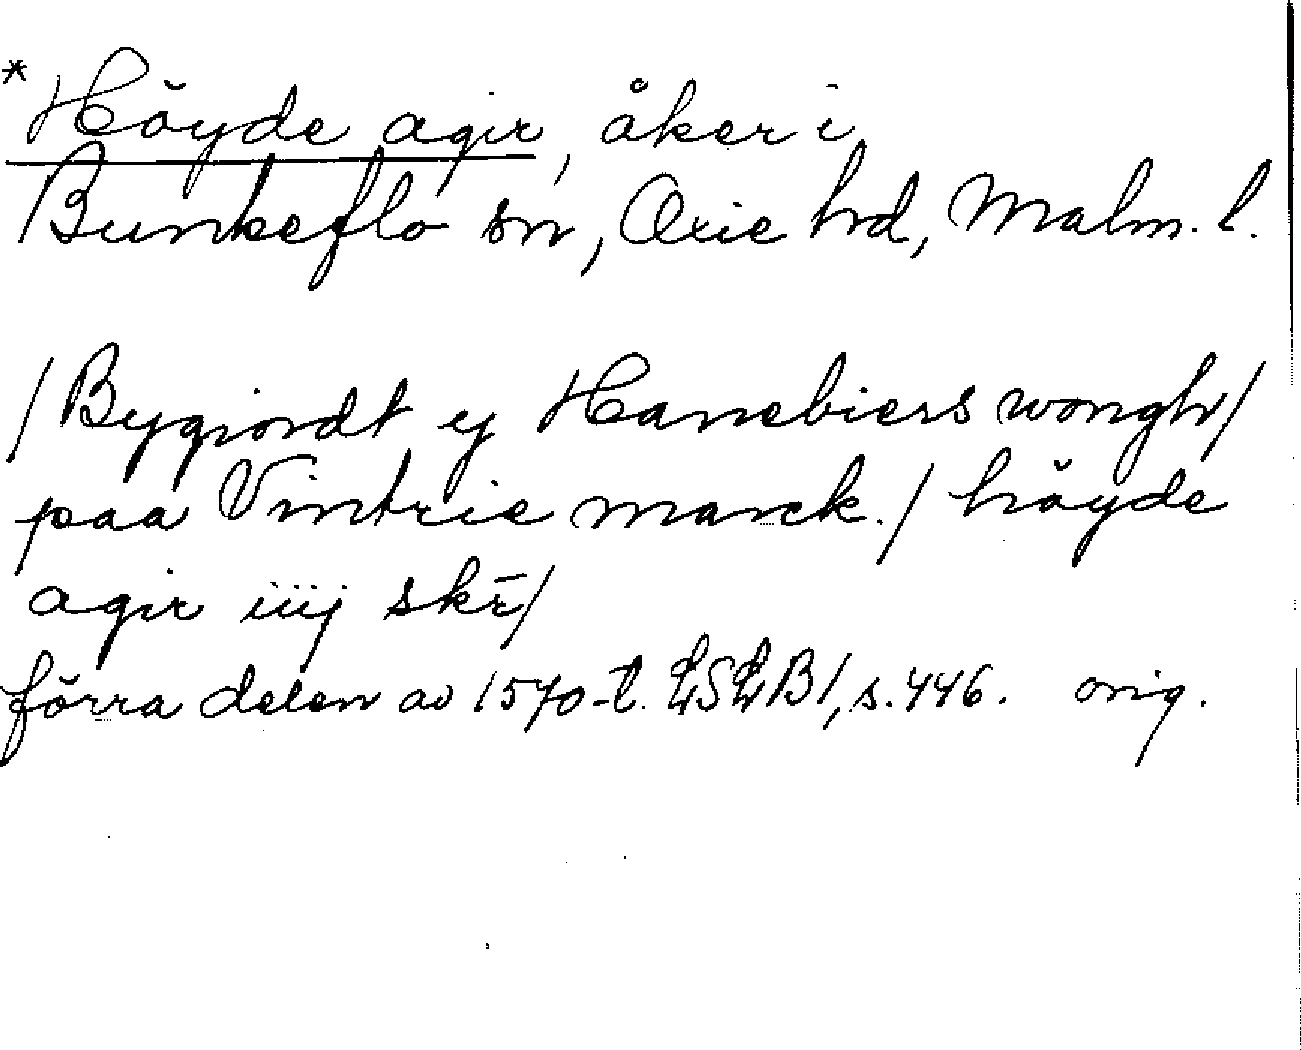 *Höyde agir, åker i
Bunkeflo sn, Oxie hd, Malm. l.
/Bygiordt y Hanebiers wongh/
paa Vintrie marck./ höyde
agir iiij skr̄/
förra delen av 1570-t. LSLB1, s. 446. orig.